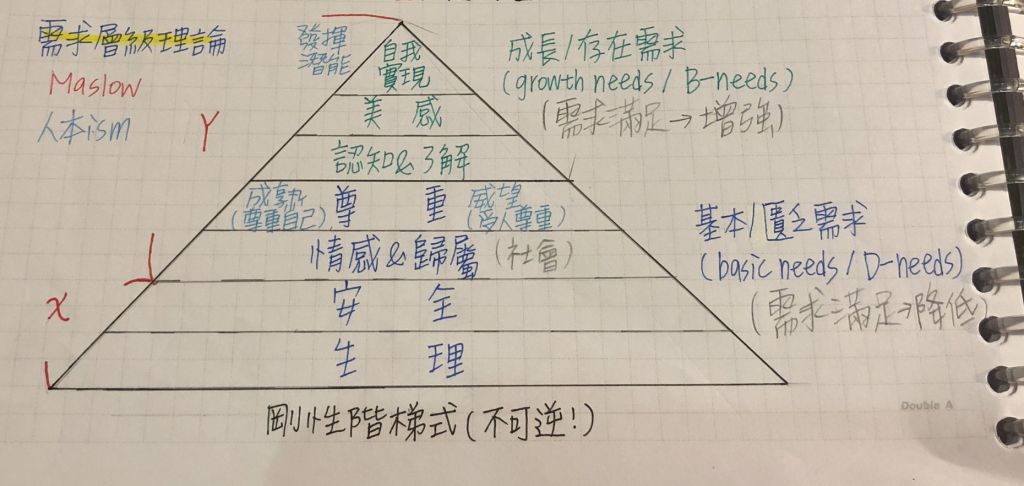 需求層級理論
Maslow
人本ism
Y
X
發揮
潛能
自我
實現
美感
認知&了解
成熟
(尊重自己)
尊重
威望
(受人尊重)
情感&歸屬(社會)
安全
生理
成長/存在需求
(growth needs / B-needs)
(需求滿足→增強)
基本/匱乏需求
(basic needs / D-needs)
(需求滿足→降低)
剛性階梯式(不可逆!)
Double A